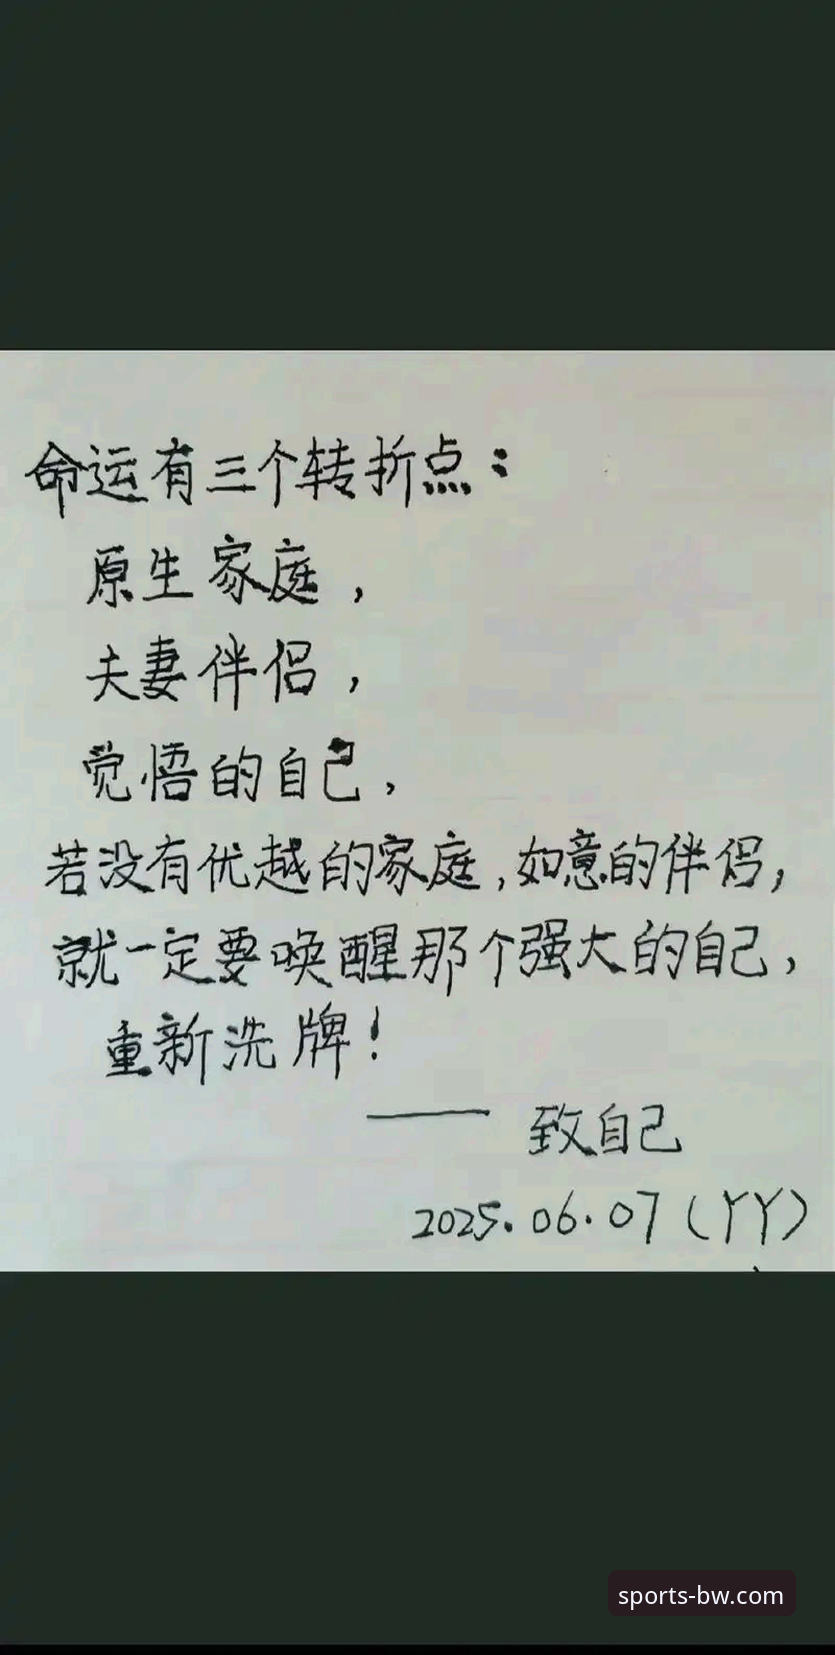 命运有三个转折点：
原生家庭，
夫妻伴侣，
觉悟的自己，
若没有优越的家庭，如意的伴侣，
就一定要唤醒那个强大的自己，
重新洗牌！
—— 致自己
2025.06.07（YY）
sports-bw.com